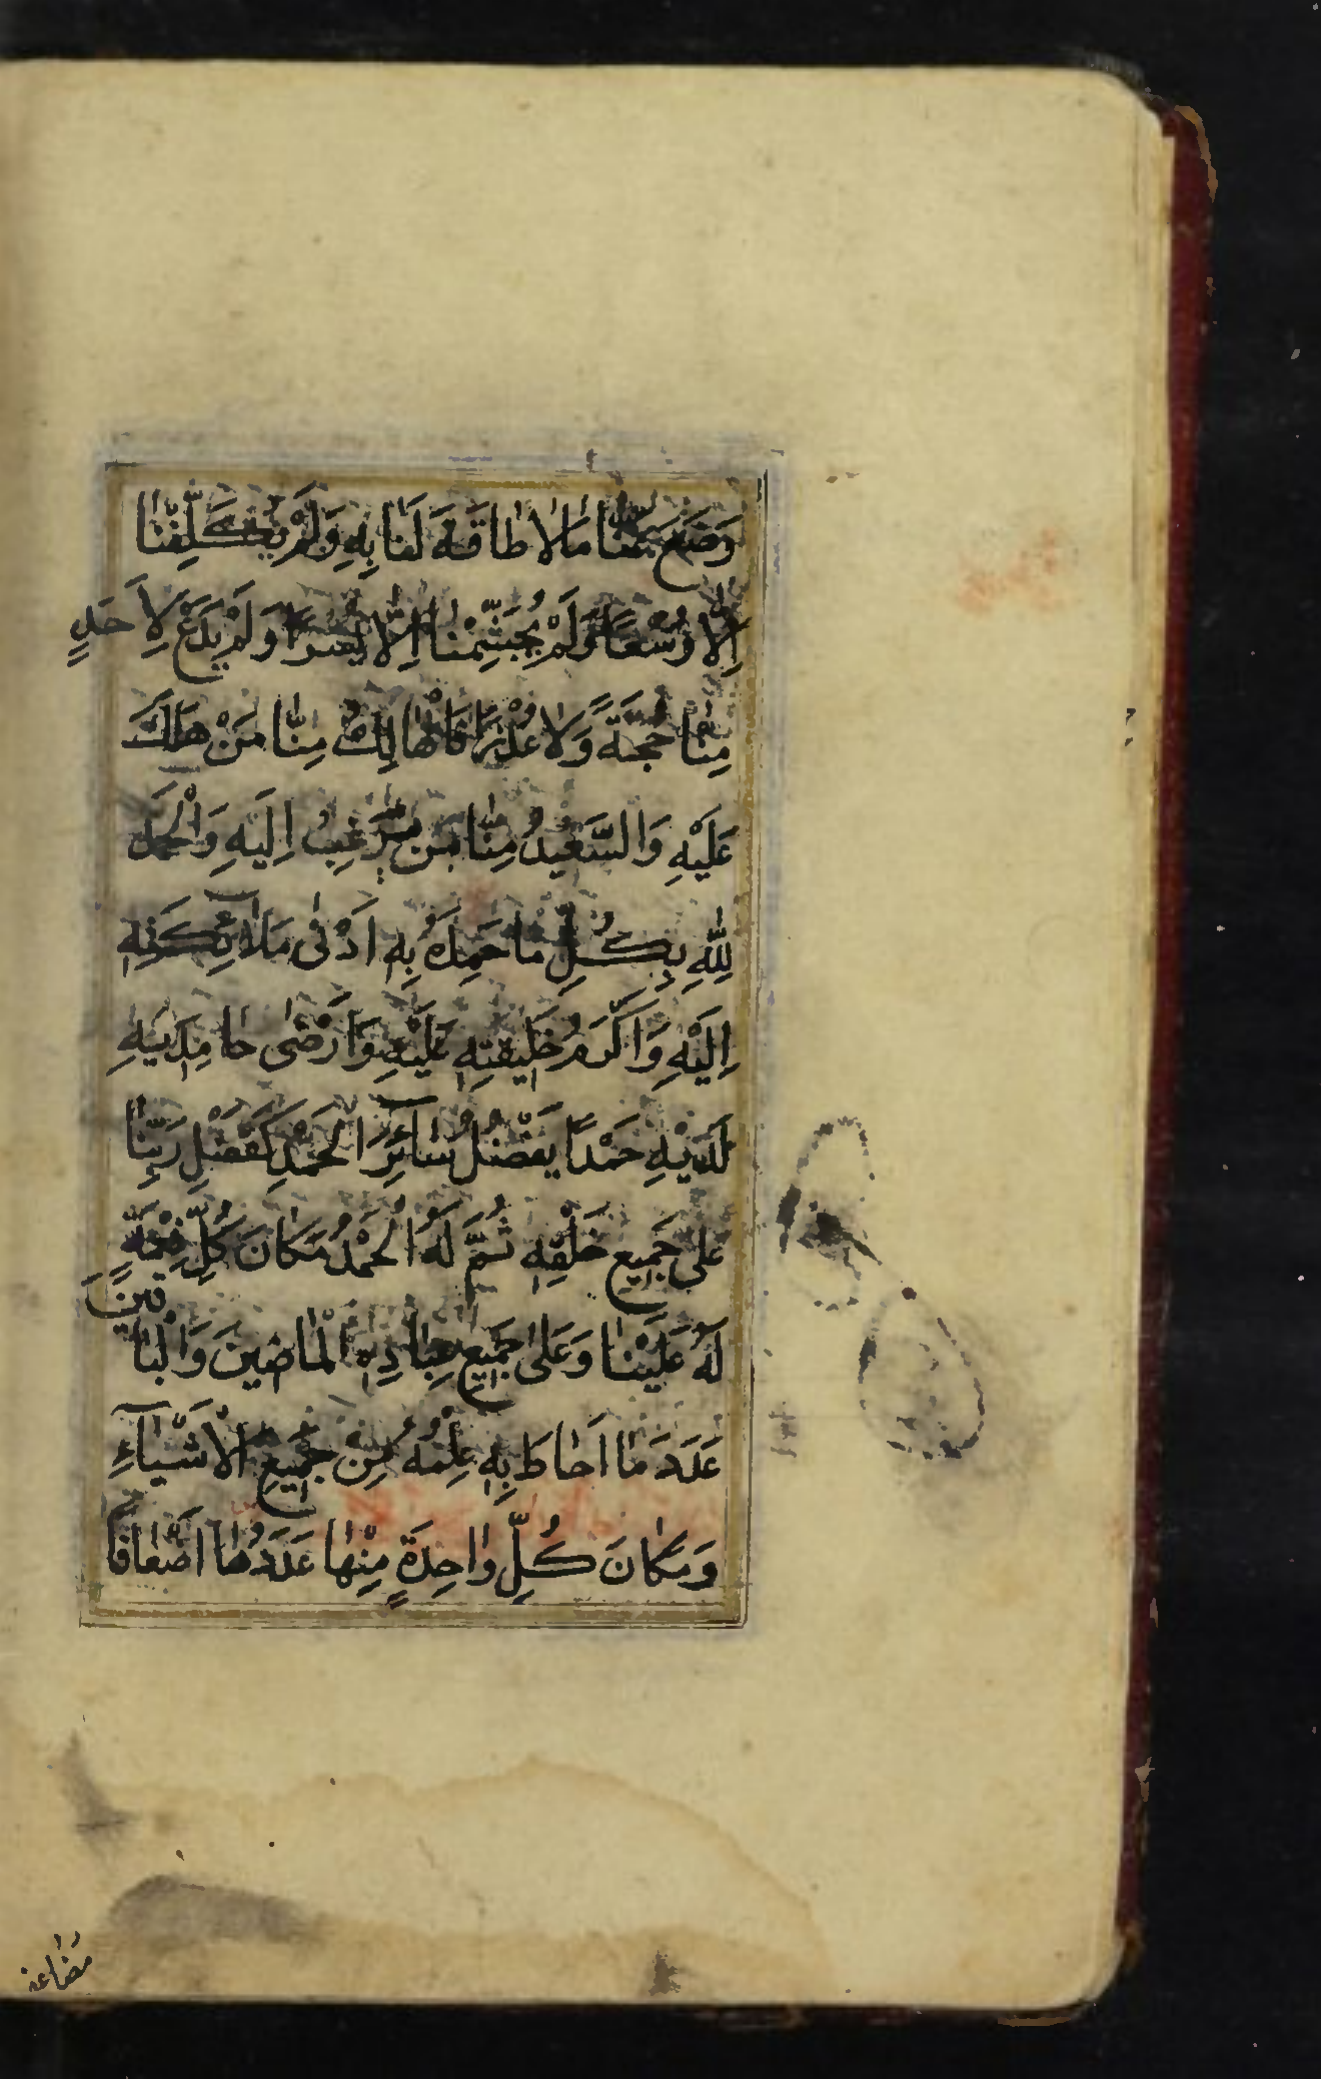 وَضَعَ عَنَّا مَا لَا طَاقَةَ لَنَا بِهِ وَلَمْ يُكَلِّفْنَا
اِلَّا وُسْعًا وَلَمْ يُجَشِّمْنَا اِلَّا يُسْرًا وَلَمْ يَدَعْ لِاَحَدٍ
مِنَّا حُجَّةً وَلَا عُذْرًا فَالْهَالِكُ مِنَّا مَنْ هَلَكَ
عَلَيْهِ وَالسَّعِيدُ مِنَّا مَنْ رَغِبَ اِلَيْهِ وَالْحَمْدُ
لِلّٰهِ بِكُلِّ مَا حَمِدَهُ بِهِ اَدْنٰى مَلٰٓائِكَتِهِ
اِلَيْهِ وَاَكْرَمُ خَلِيقَتِهِ عَلَيْهِ وَاَرْضٰى حَامِدِيهِ
لَدَيْهِ حَمْدًا يَفْضُلُ سَآئِرَ الْحَمْدِ كَفَضْلِ رَبِّنَا
عَلٰى جَمِيعِ خَلْقِهِ ثُمَّ لَهُ الْحَمْدُ مَكَانَ كُلِّ نِعْمَةٍ
لَهُ عَلَيْنَا وَعَلٰى جَمِيعِ عِبَادِهِ الْمَاضِينَ وَالْبَاقِينَ
عَدَدَ مَا اَحَاطَ بِهِ عِلْمُهُ مِنْ جَمِيعِ الْاَشْيَآءِ
وَمَكَانَ كُلِّ وَاحِدَةٍ مِنْهَا عَدَدُهَا اَضْعَافًا
مُضَاعَفَة